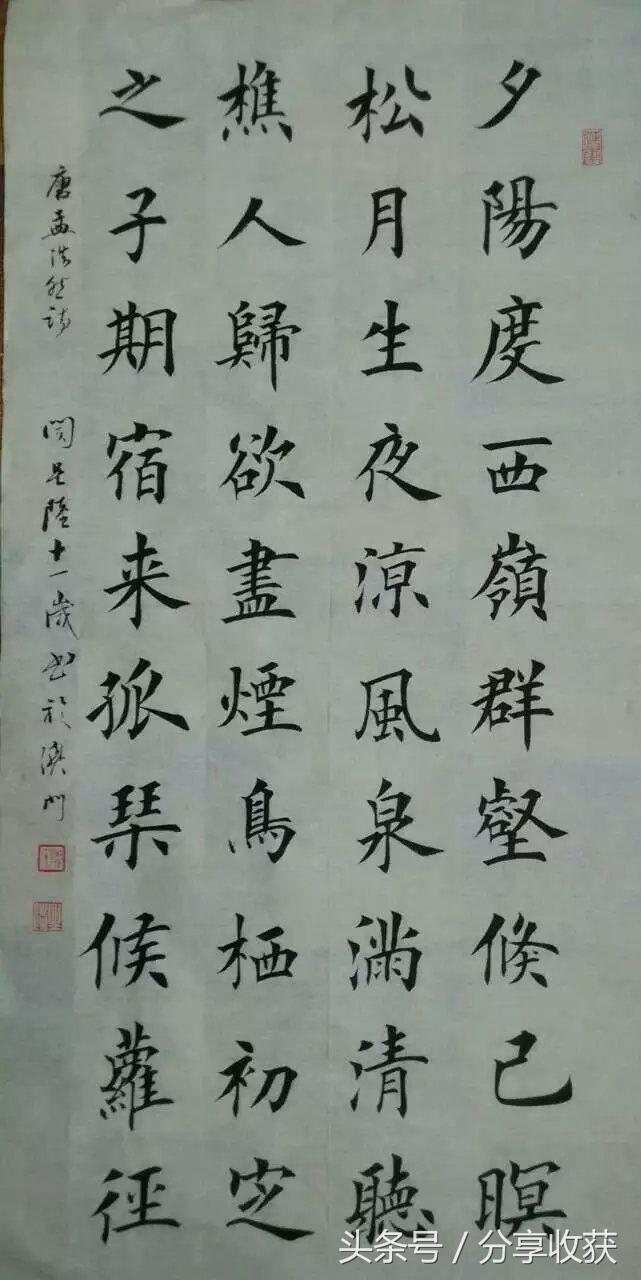 夕陽度西嶺群壑倏已暝
松月生夜涼風泉滿清聽
樵人歸欲盡煙鳥栖初定
之子期宿来孤琴候蘿徑
唐孟浩然詩
閆是陸十一歲书於澳门
头条号 / 分享收获